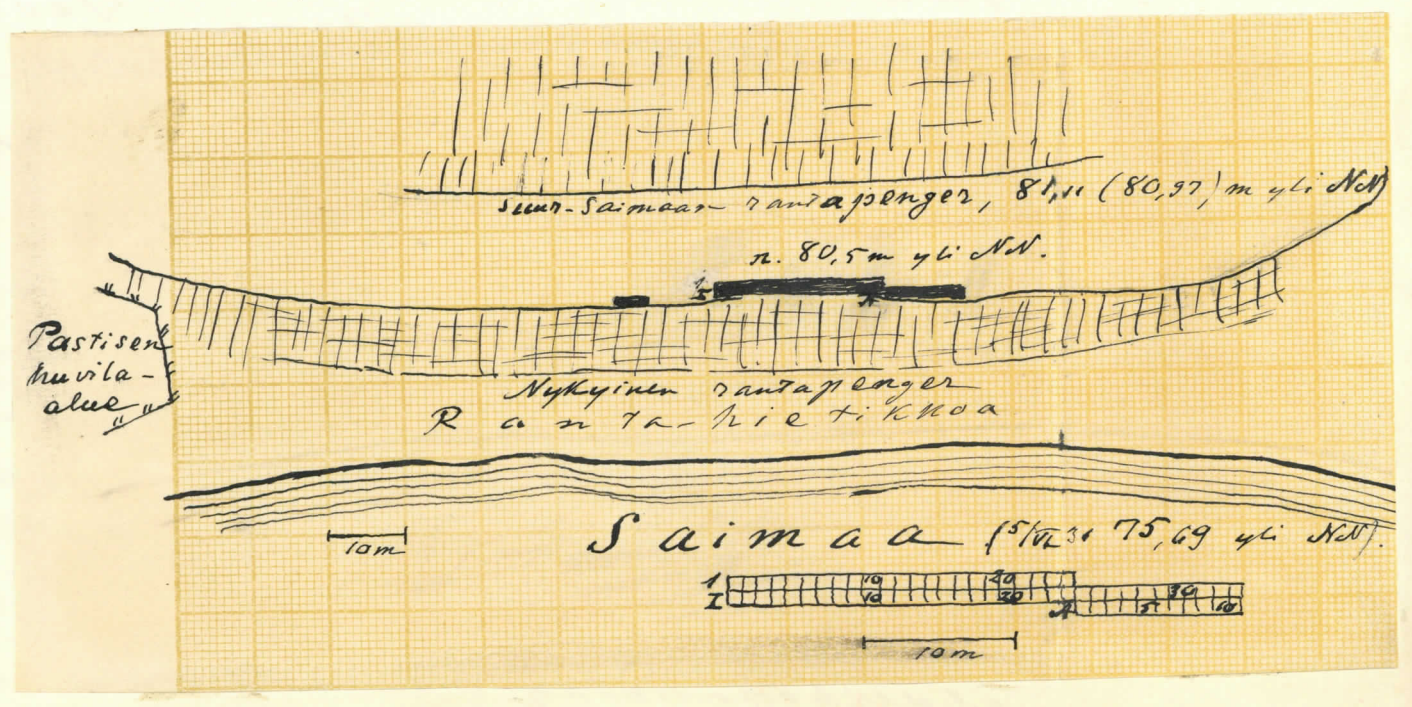 Suur-Saimaan rantapenger, 81,11 (80,97) m yli NN)
n. 80,5 m yli NN.
1
I
A
Pastisen
huvila-
alue
Nykyinen rantapenger
Ranta-hietikkoa
10 m
Saimaa (5/VII 31 75,69 yli NN).
1 10 20 30
I 10 20
A 5 10
10 m